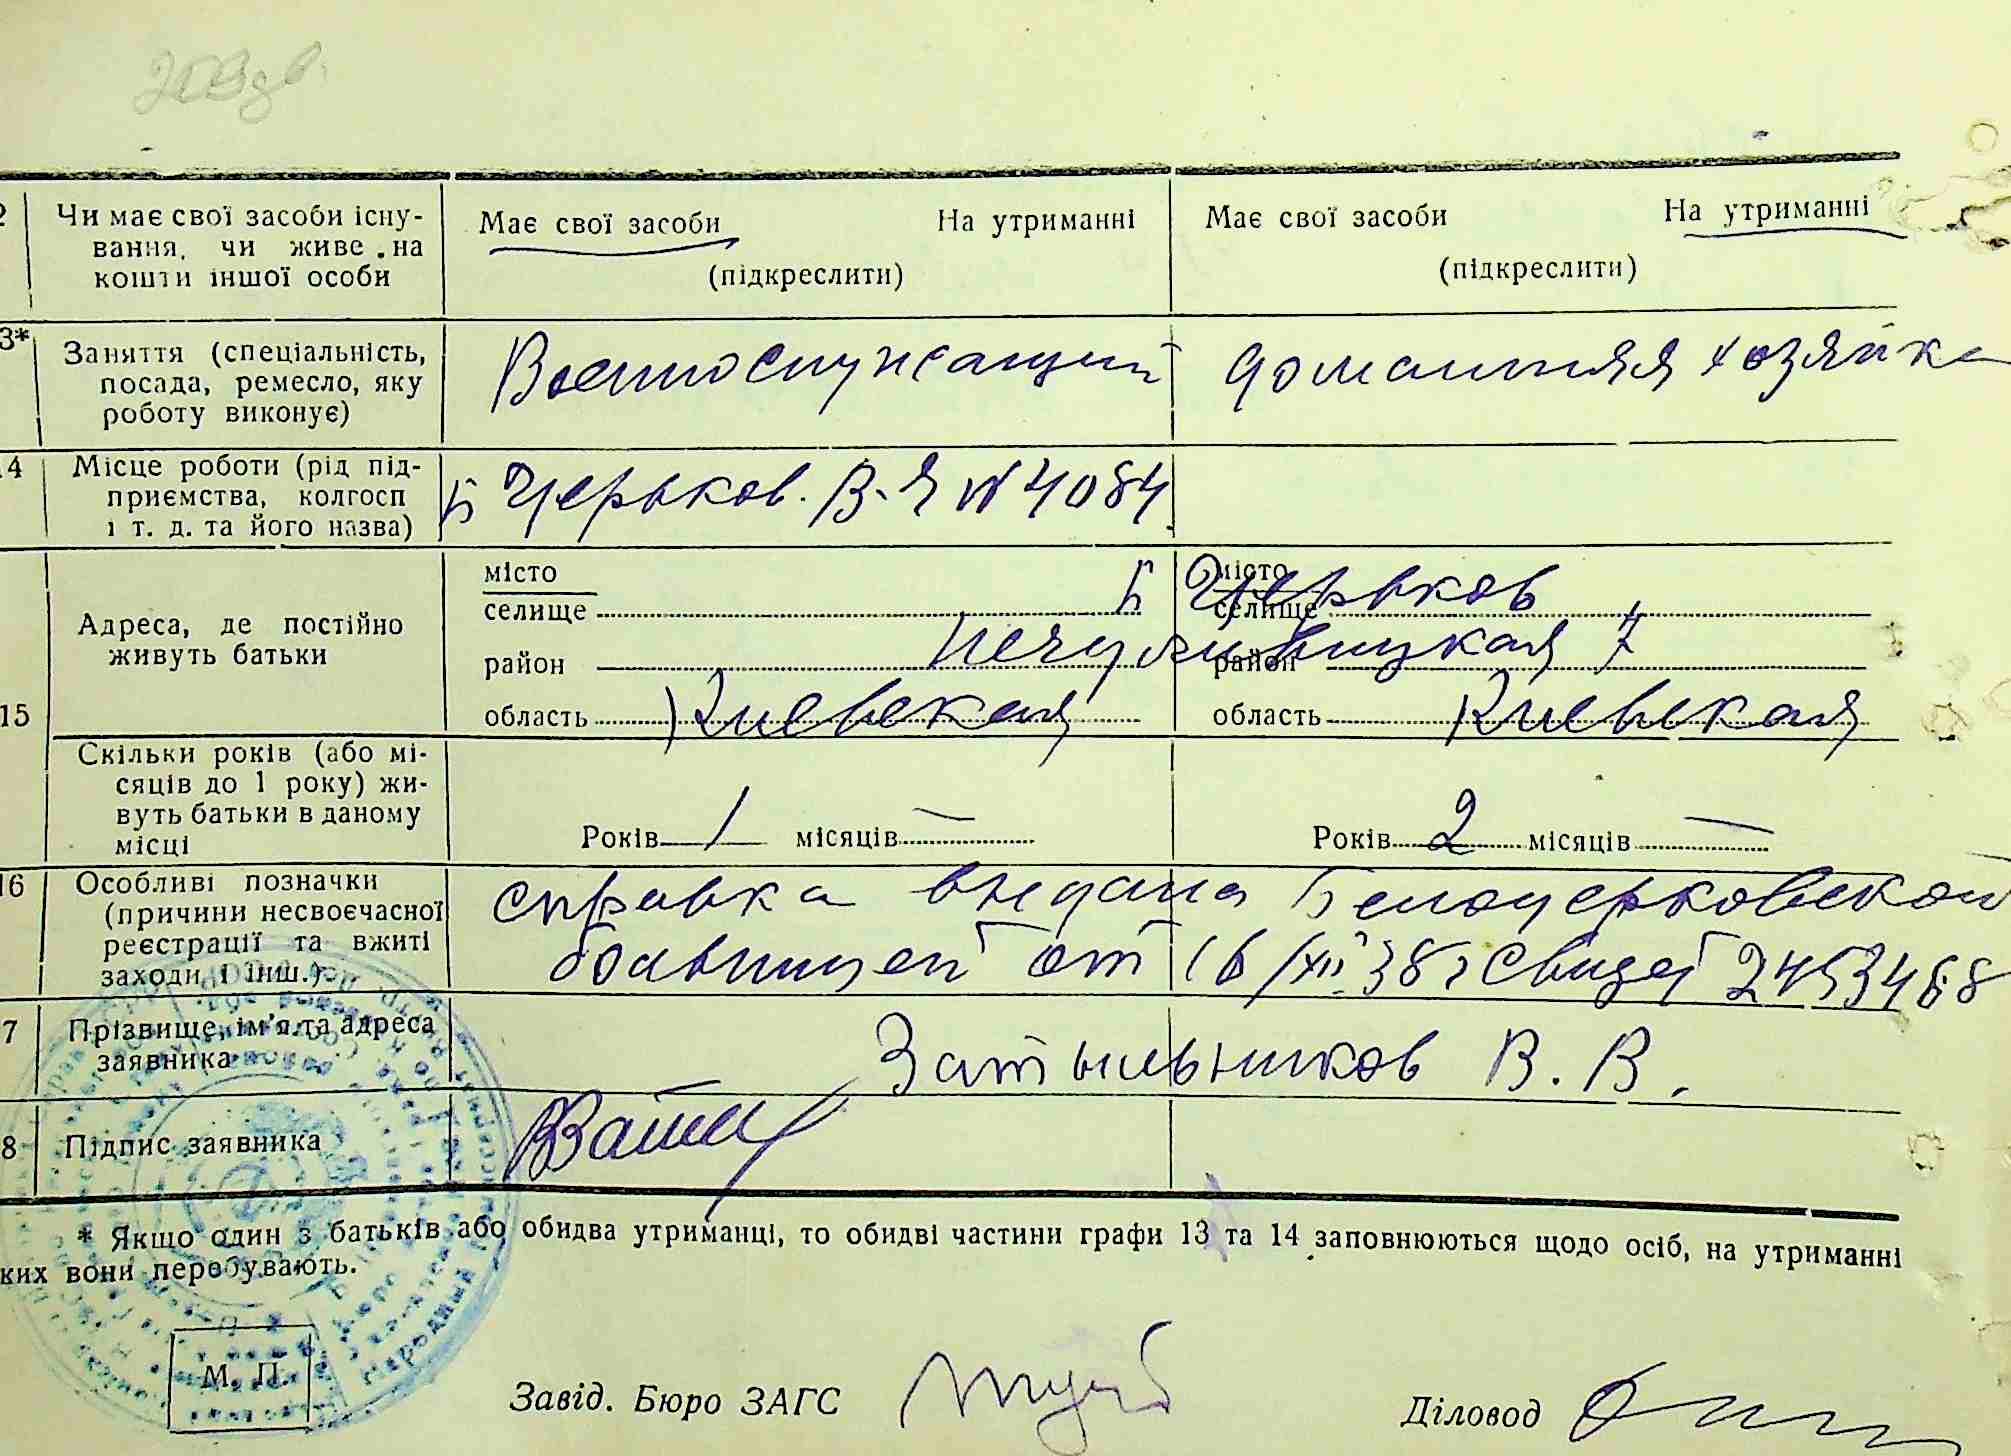 2 Чи має свої засоби існу-
вання, чи живе на
кошти іншої особи
Має свої засоби На утриманні
(підкреслити)
Має свої засоби На утриманні
(підкреслити)
3* Заняття (спеціальність,
посада, ремесло, яку
роботу виконує)
Военнослужащий
домашняя хозяйка
14 Місце роботи (рід під-
приємства, колгосп
і т. д. та його назва)
Б Церьков. В-Я N 4084
15 Адреса, де постійно
живуть батьки
місто
селище
район
область Киевская
місто
селище
район
область Киевская
Б Церьков
7
Скільки років (або мі-
сяців до 1 року) жи-
вуть батьки в даному
місці
Років 1 місяців —
Років 2 місяців —
16 Особливі позначки
(причини несвоєчасної
реєстрації та вжиті
заходи і інш.)
справка выдана Белоцерковской
больницей от 16/XII 38 г Свидет 2453468
7 Прізвище, ім'я та адреса
заявника
Затыльников В. В.
8 Підпис заявника
* Якщо один з батьків або обидва утриманці, то обидві частини графи 13 та 14 заповнюються щодо осіб, на утриманні
ких вони перебувають.
М. П.
Завід. Бюро ЗАГС
Діловод